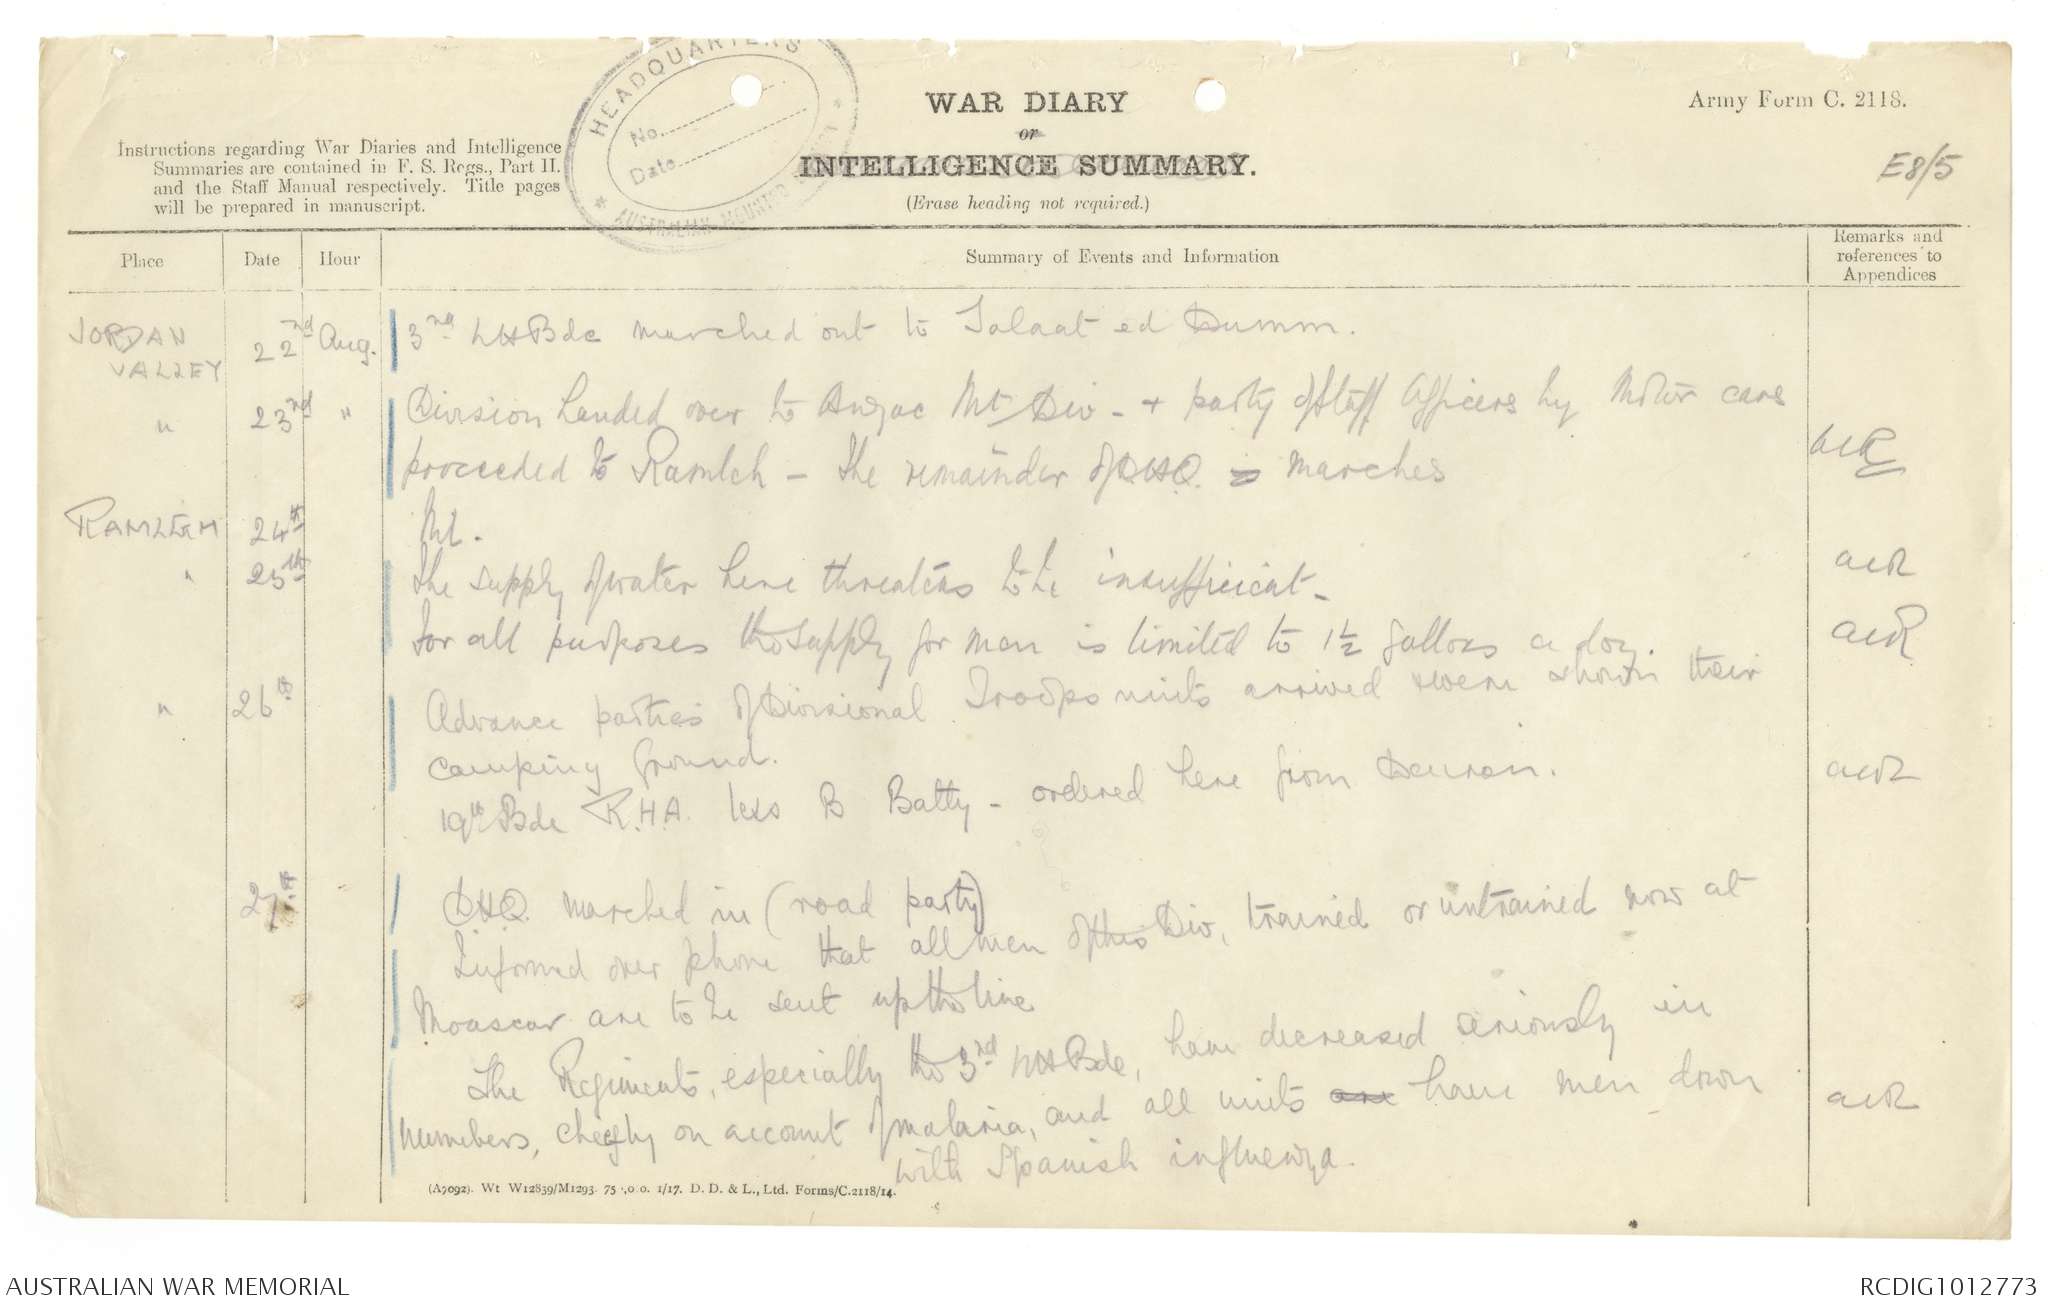 HEADQUARTERS
No.
Date
AUSTRALIAN MOUNTED DIVISION
WAR DIARY
or
INTELLIGENCE SUMMARY.
(Erase heading not required.)
Army Form C. 2118.
E8/5
Instructions regarding War Diaries and Intelligence
Summaries are contained in F. S. Regs., Part II.
and the Staff Manual respectively. Title pages
will be prepared in manuscript.
Place Date Hour Summary of Events and Information Remarks and references to Appendices
JORDAN VALLEY 22nd Aug. 3rd LHBde marched out to Talaat ed Dumm.
" 23nd " Division handed over to Anzac Mtd Div - + party of Staff Officers by Motor cars
proceeded to Ramleh - the remainder of DHQ. marches
RAMLEH 24th Nil.
" 25th The supply of water here threatens to be insufficient - 
For all purposes the supply for men is limited to 1½ gallons a day.
" 26th Advance parties of Divisional Troops units arrived & were shown their
camping ground.
19th Bde R.H.A. less B Batty - ordered here from Deiran.
27th DHQ. marched in (road party)
Informed over phone that all men of this Div, trained or untrained now at
Moascar are to be sent up the line
The Regiments, especially the 3rd LHBde, have decreased seriously in
numbers, chiefly on account of malaria, and all units are have men down
with Spanish influenza.
(A7092). Wt W12839/M1293 75 ,00. 1/17. D. D. & L., Ltd. Forms/C.2118/14.
AUSTRALIAN WAR MEMORIAL
RCDIG1012773